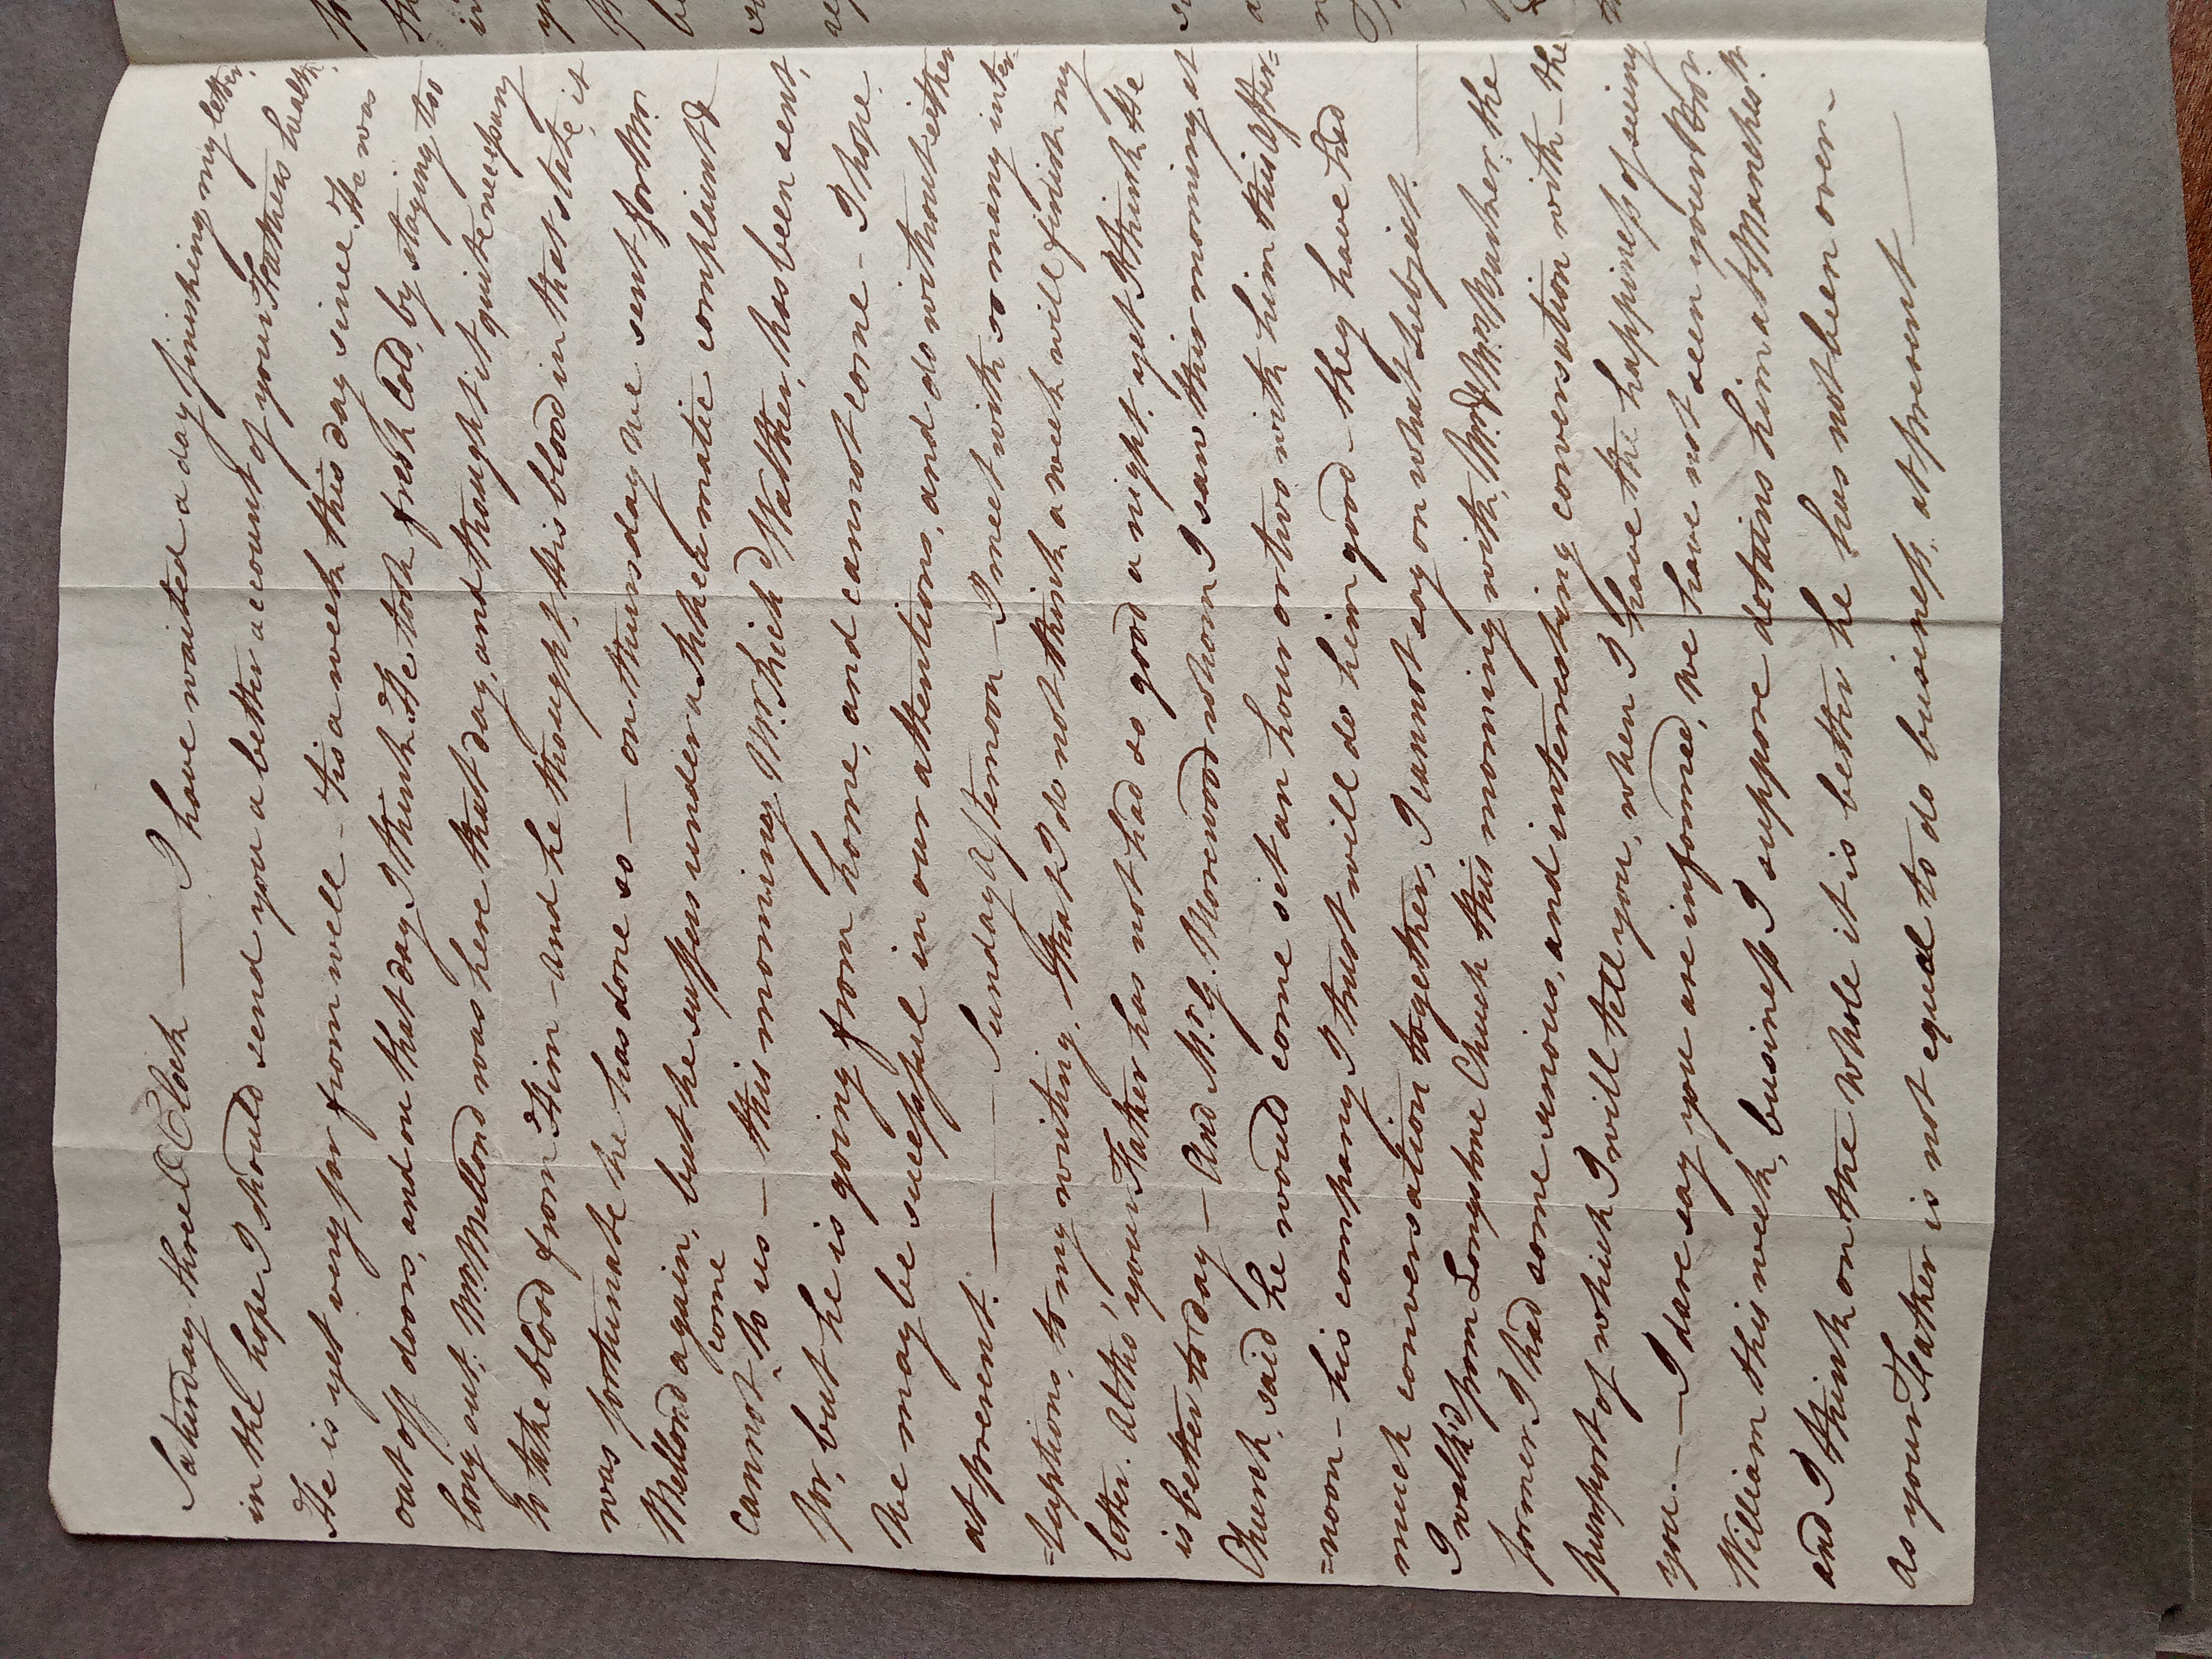 Saturday three O Clock — I have waited a day finishing my letter,
in the hope I should send you a better account of your Fathers health.
He is yet very far from well - tis a week this day since He was
out off doors, and on that day I think He took fresh Cold, by staying too
long out; Mr. Mellond was here that day, and thought it quite necessary
to take blood from Him - and he thought, His blood in that state, it
was fortunate he has done so — on thursday we sent for Mr.
Mellond again, but he suffers under asthmatic complaint &
cannot come to us — this morning, Mr. has been sent,
for, but he is going from home, and cannot come - I hope
We may be successful in our attentions, and do without either
at present. — — Sunday Afternoon - I meet with so many inter=
=ruptions, to my writing, that I do not think a week will finish my
letter. Altho' your Father has not had so good a night, yet I think He
is better to day — And Mr. G. Morewood whom I saw this morning at
Church, said he would come sit an hour or two with him this After=
=noon - his company I trust will do him good - they have had
much conversation together, I cannot say on what subject. —
I walk'd from Longstone Church this morning with, Mr. & Mrs. the
former I had some serious, and interesting conversation with - the
purport of which I will tell you, when I have the happiness of seeing
you. — I dare say you are informed, we have not seen your Bror.
William this week, business I suppose detains him at Manchestr.
and I think on the whole it is better he has not been over -
as your Father is not equal to do business, at present —